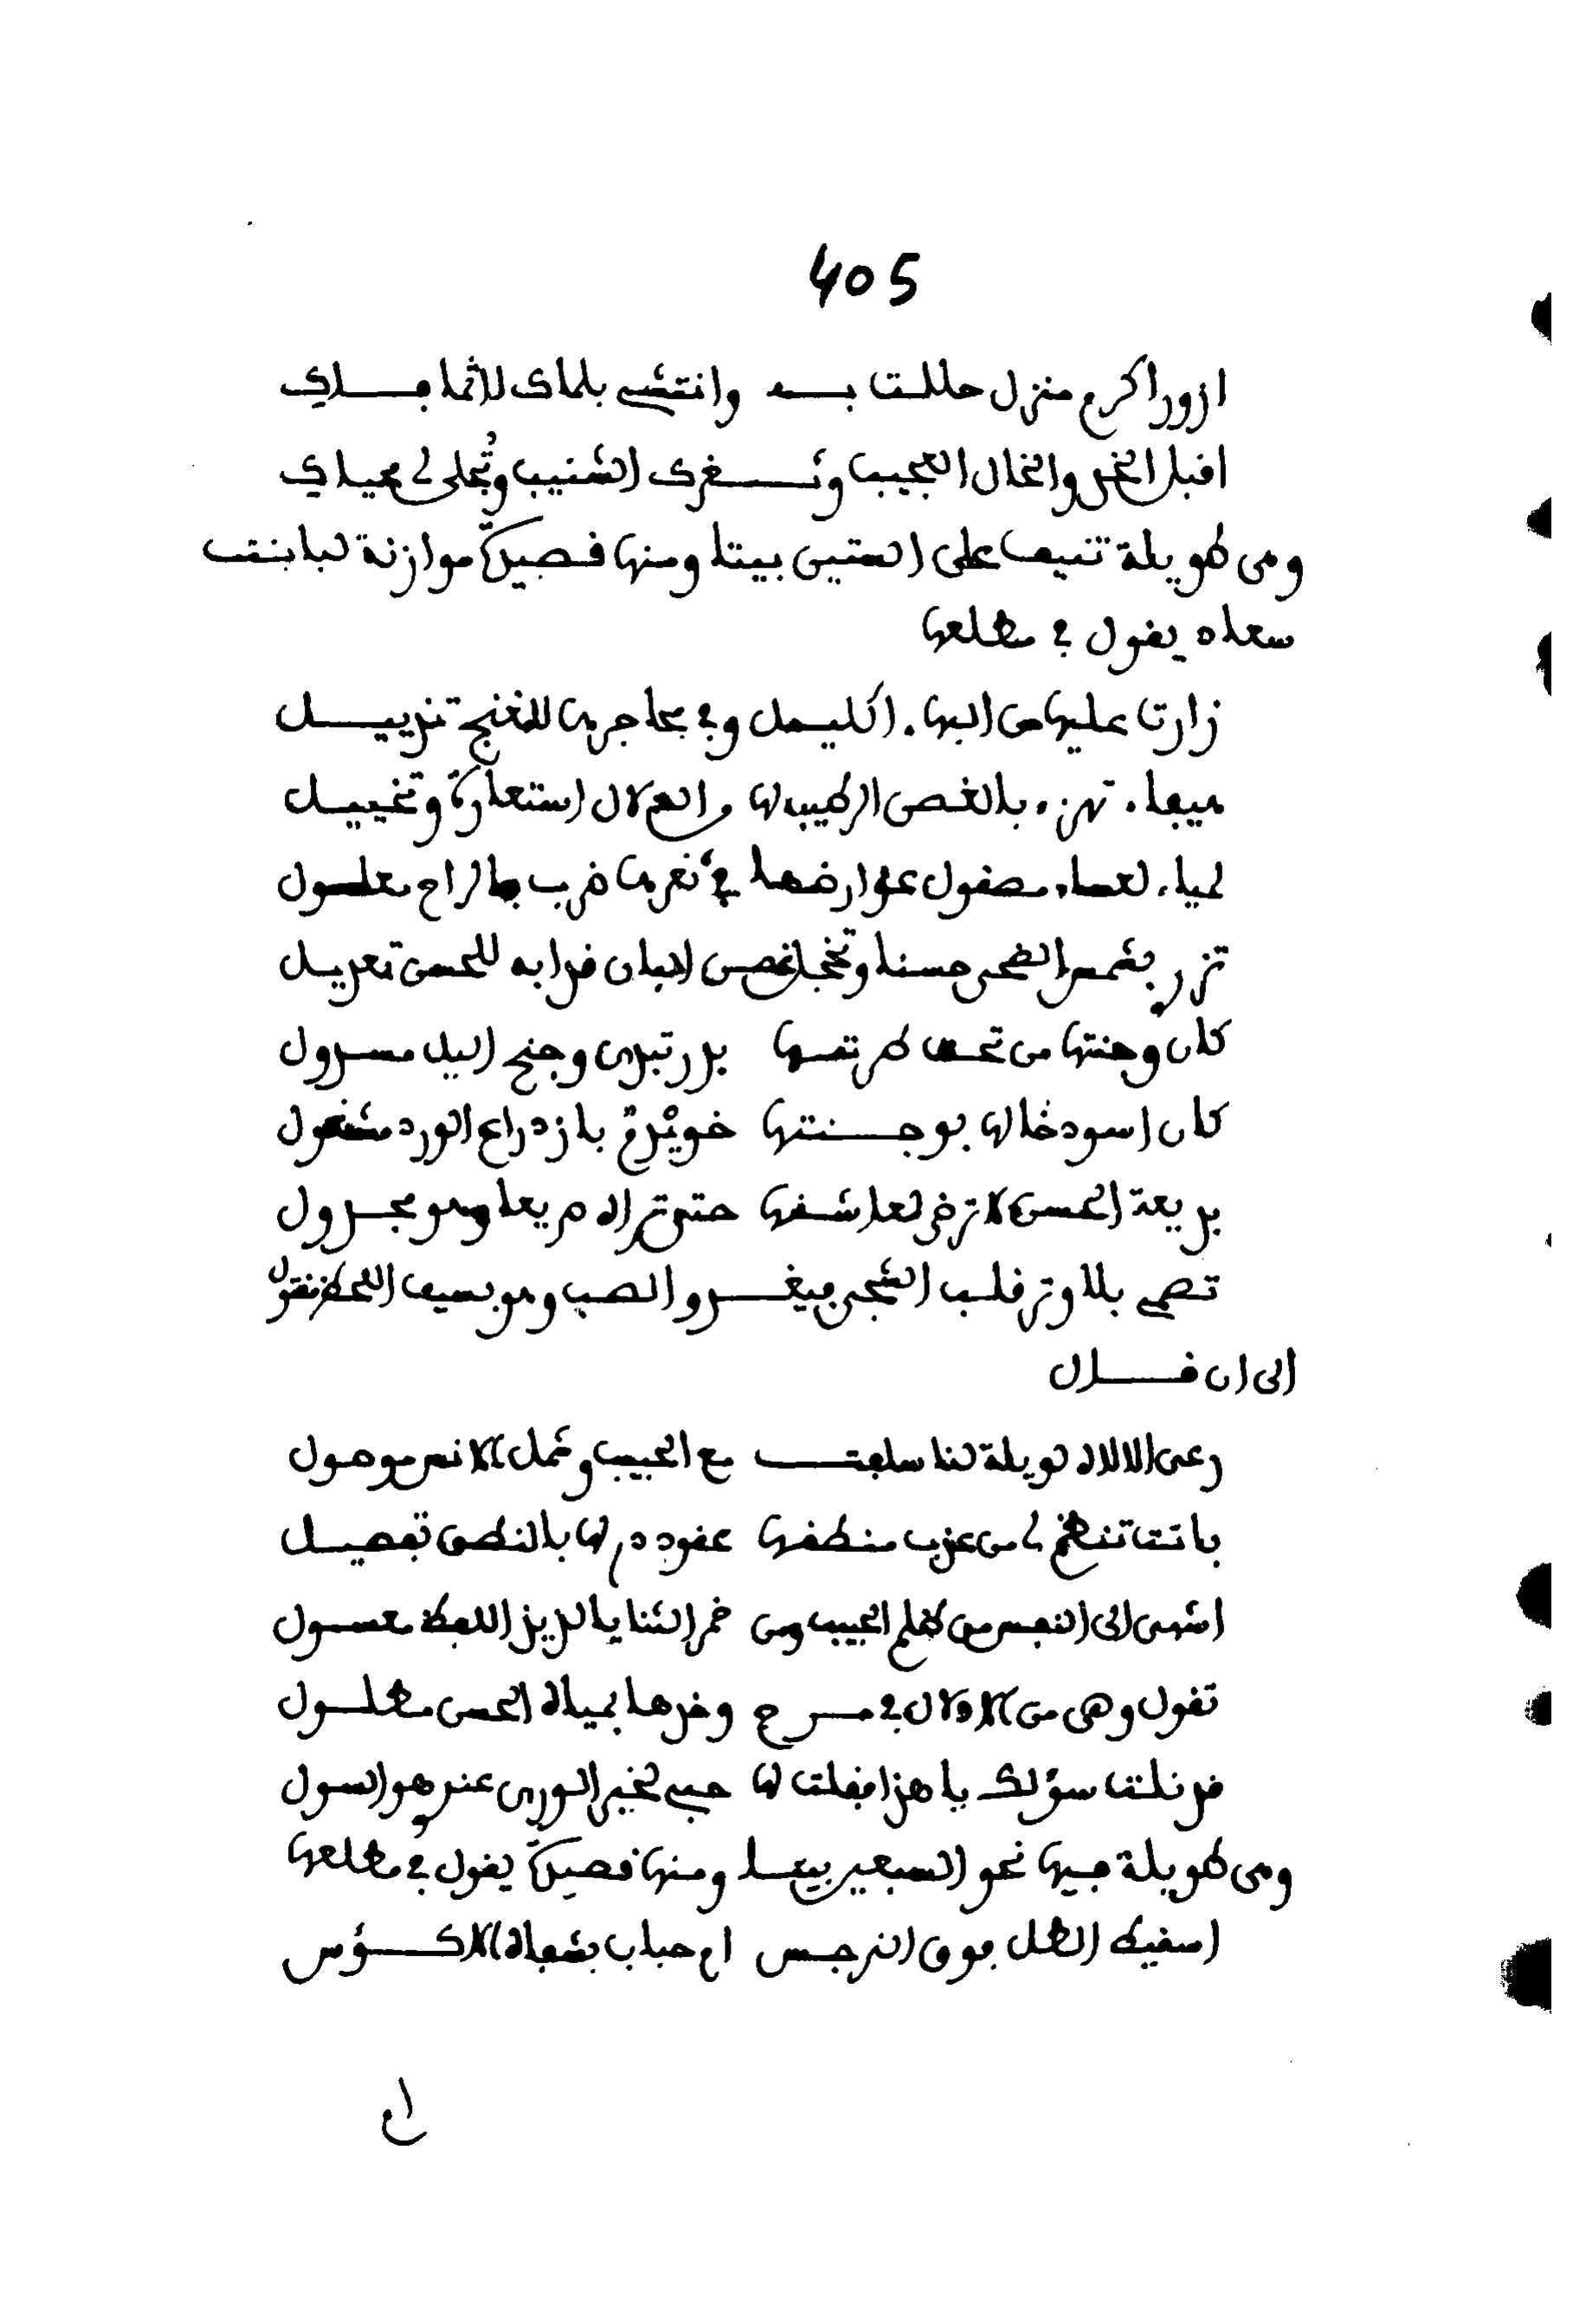 405
ازور اكرم منزل حللت به وانتشي بلماك لاثما فاك
اقبل الخد والخال العجيب وثغرك الشنيب وتجلى لي محياك
وهي طويلة تنيف على الستين بيتا ومنها قصيدة موازنة لبانت
سعاد يقول في مطلعها
زارت عليها من البهاء اكليل وفي محاجرها للغنج تنزيل
هيفاء تهزء بالغصن الرطيب لها والدلال استعارة وتخييل
لمياء لعساء مصقول عوارضها في ثغرها ضرب بالراح معلول
تزر بشمس الضحى حسنا وتخجل غصن البان قدا به للحسن تعديل
كان وجنتها من تحت طرتها بدر تبدى وجنح اليل مسدول
كان اسود خالها بوجنتها خويدم بازدراع الورد مشغول
بديعة الحسن لا ترضى لعاشقها حتى تراه صريعا وهو مجدول
تصمي بلا وتر قلب الشجي فيغدو الصب وهو بسيف اللحظ مقتول
الى ان قال
رعى الالاه لويلة لنا سلفت مع الحبيب وشمل الانس موصول
باتت تنظم لي من عذب منطقها عقود در لها بالنطق تفصيل
اشهى الى النفس من ظلم الحبيب ومن خمر الثنايا لذيذ اللفظ معسول
تقول وهي من الادلال في مرح وخدها بمياه الحسن مطلول
قد نلت سؤلك يا هذا فقلت لها حبي لخير الورى عندي هو السول
وهي طويلة فيها نحو السبعين بيتا ومنها قصيدة يقول في مطلعها
اسقيط الطل فوق النرجس ام حباب بشفاه الاكؤس
ام